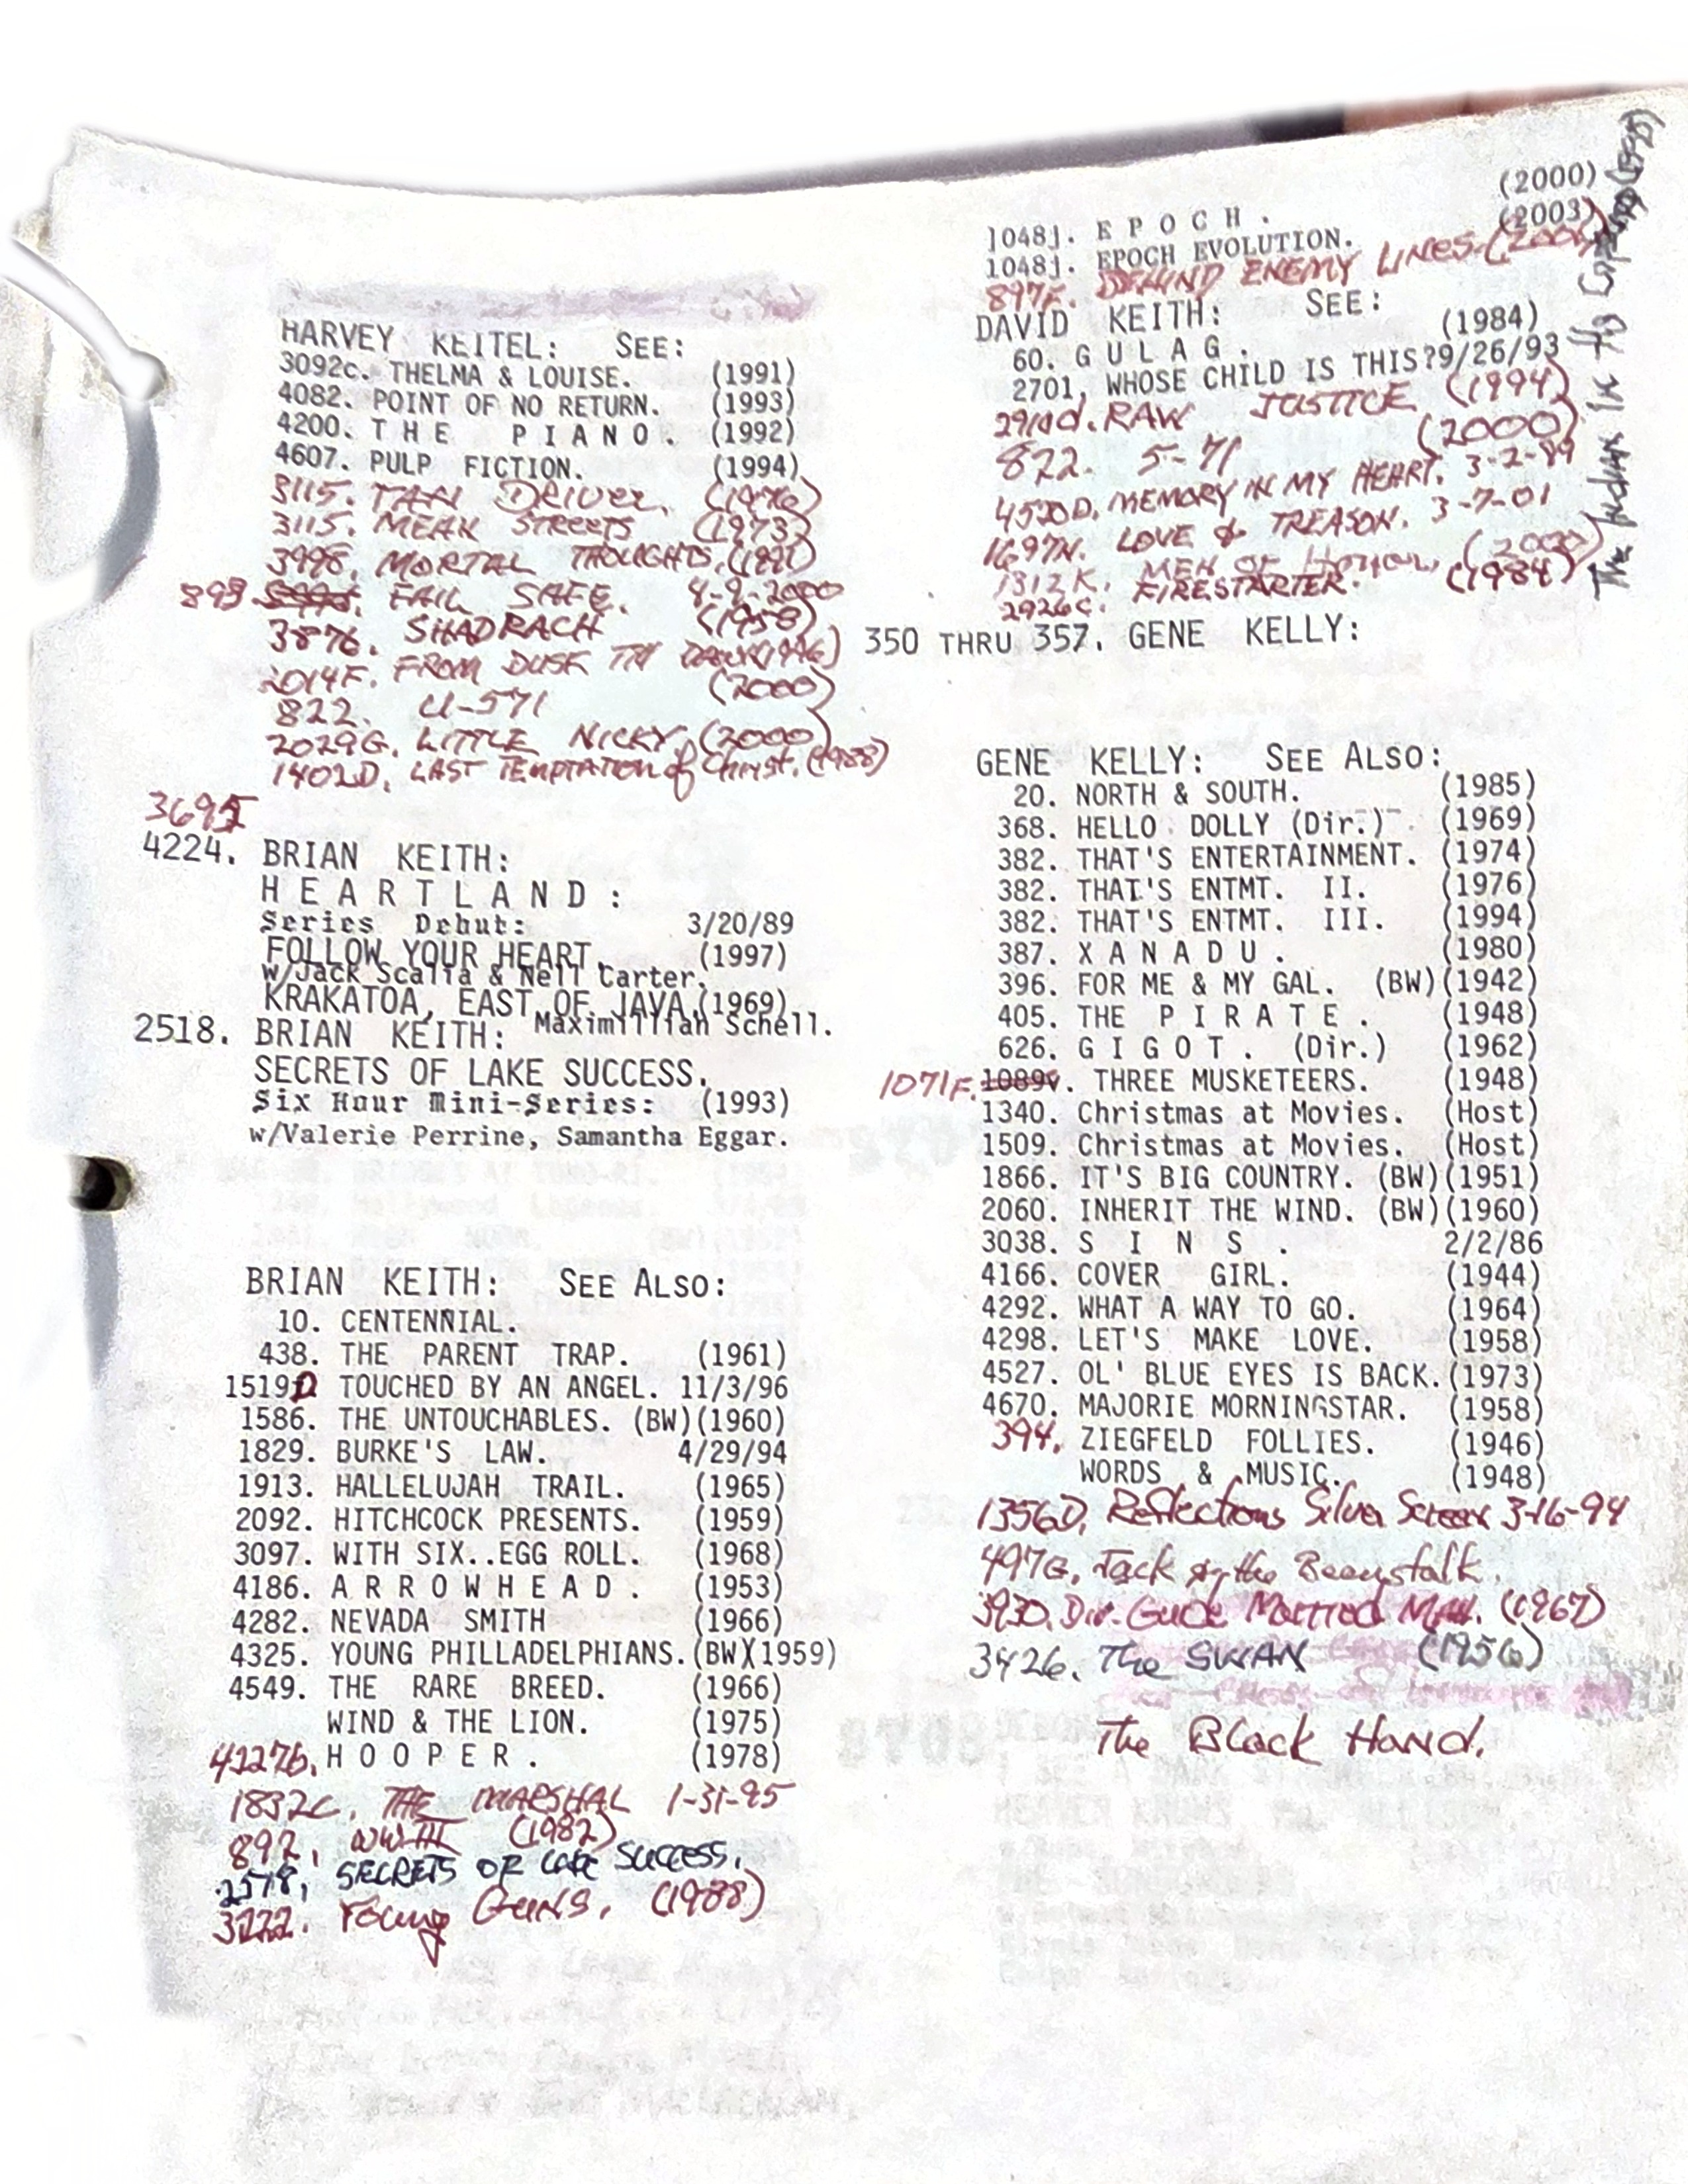 HARVEY KEITEL: SEE:
3092c. THELMA & LOUISE. (1991)
4082. POINT OF NO RETURN. (1993)
4200. T H E P I A N O . (1992)
4607. PULP FICTION. (1994)
3115. TAXI DRIVER. (1976)
3115. MEAN STREETS (1973)
3998. MORTAL THOUGHTS. (1991)
893. FAIL SAFE. 4-9-2000
3876. SHADRACH (1958)
2014F. FROM DUSK Till DAWN (1996)
822. U-571 (2000)
2029G. LITTLE NICKY. (2000)
1402D. LAST TEMPTATION of Christ. (1988)
3695I
4224. BRIAN KEITH:
H E A R T L A N D :
Series Debut: 3/20/89
FOLLOW YOUR HEART. (1997)
w/Jack Scalia & Nell Carter.
KRAKATOA, EAST OF JAVA.(1969)
Maximillian Schell.
2518. BRIAN KEITH:
SECRETS OF LAKE SUCCESS.
Six Hour Mini-Series: (1993)
w/Valerie Perrine, Samantha Eggar.
BRIAN KEITH: SEE ALSO:
10. CENTENNIAL.
438. THE PARENT TRAP. (1961)
1519D TOUCHED BY AN ANGEL. 11/3/96
1586. THE UNTOUCHABLES. (BW)(1960)
1829. BURKE'S LAW. 4/29/94
1913. HALLELUJAH TRAIL. (1965)
2092. HITCHCOCK PRESENTS. (1959)
3097. WITH SIX..EGG ROLL. (1968)
4186. A R R O W H E A D . (1953)
4282. NEVADA SMITH (1966)
4325. YOUNG PHILLADELPHIANS.(BW)(1959)
4549. THE RARE BREED. (1966)
WIND & THE LION. (1975)
4227b. H O O P E R . (1978)
1832c. THE MARSHAL 1-31-95
892. WW III (1982)
2518. SECRETS OF LAKE SUCCESS.
3222. Young GUNS. (1988)
1048j. E P O C H . (2000)
1048j. EPOCH EVOLUTION. (2003)
897F. BEHIND ENEMY LINES. (2001)
DAVID KEITH: SEE:
60. G U L A G . (1984)
2701. WHOSE CHILD IS THIS?9/26/93
2910d. RAW JUSTICE (1994)
822. 5-71 (2000)
4520D. MEMORY IN MY HEART. 3-2-99
1697N. LOVE & TREASON. 3-7-01
1312K. MEN OF Honor. (2000)
2926c. FIRESTARTER. (1984)
The Indian In The Cupboard (1995)
350 THRU 357. GENE KELLY:
GENE KELLY: SEE ALSO:
20. NORTH & SOUTH. (1985)
368. HELLO DOLLY (Dir.) (1969)
382. THAT'S ENTERTAINMENT. (1974)
382. THAT'S ENTMT. II. (1976)
382. THAT'S ENTMT. III. (1994)
387. X A N A D U . (1980)
396. FOR ME & MY GAL. (BW)(1942)
405. THE P I R A T E . (1948)
626. G I G O T . (Dir.) (1962)
1071F. 1089v. THREE MUSKETEERS. (1948)
1340. Christmas at Movies. (Host)
1509. Christmas at Movies. (Host)
1866. IT'S BIG COUNTRY. (BW)(1951)
2060. INHERIT THE WIND. (BW)(1960)
3038. S I N S . 2/2/86
4166. COVER GIRL. (1944)
4292. WHAT A WAY TO GO. (1964)
4298. LET'S MAKE LOVE. (1958)
4527. OL' BLUE EYES IS BACK.(1973)
4670. MAJORIE MORNINGSTAR. (1958)
394. ZIEGFELD FOLLIES. (1946)
WORDS & MUSIC. (1948)
1356D. Reflections Silver Screen 3-16-94
497G. Jack & the Beanstalk.
3930. Dir. Guide Married Man. (1967)
3426. The SWAN (1956)
The Black Hand.